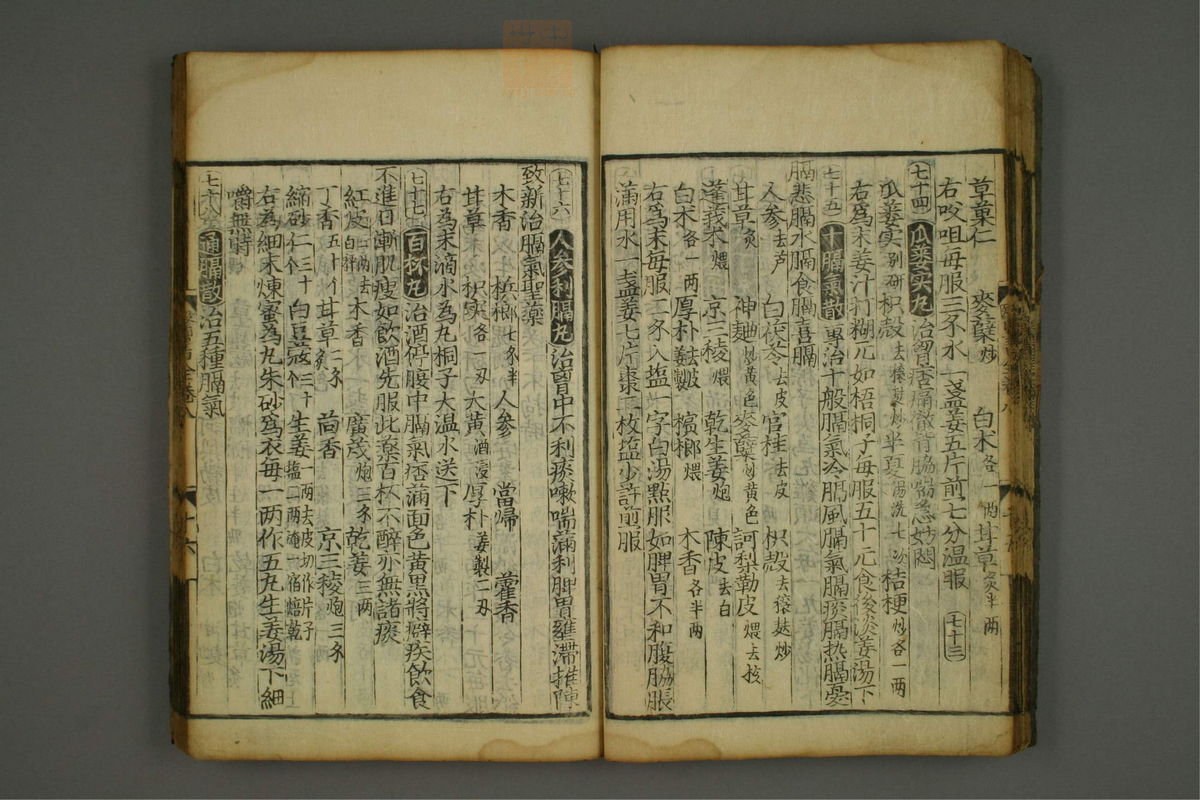 草菓仁 麥糵炒 白朮各一兩 甘草炙半兩
右㕮咀每服三不水一盞姜五片煎七分温服 七十三
七十四 瓜蔞实丸 治胷痞痛徹背脇喘急妨悶
瓜蔞实别研 枳殻去穣麸炒 半夏湯洗七次 桔梗炒各一兩
右爲末姜汁打糊元如梧桐子毎服五十元食後淡姜湯下
七十五 十膈氣散 專治十般膈氣冷膈風膈氣膈痰膈热膈憂
膈悲膈水膈食膈喜膈
人参去芦 白茯苓去皮 官桂去皮 枳殻去穰麸炒
甘草炙 神麯炒黄色 麥糵炒黄色 訶梨勒皮煨去核
蓬莪朮煨 京三稜煨 乾生姜炮 陳皮去白
白朮各一兩 厚朴姜製 檳榔煨 木香各半兩
右爲末每服二錢入塩一字白湯點服如脾胃不和腹脇脹
滿用水一盞姜七片棗二枚塩少許煎服
七十六 人参利膈丸 治胷中不利痰嗽喘滿利脾胃壅滞推陳
致新治膈氣聖藥
木香 檳榔七錢半 人参 當帰 藿香
甘草 枳实各一兩 大黄酒浸 厚朴姜製二兩
右為末滴水為丸桐子大温水送下
七十七 百杯丸 治酒停腹中膈氣痞滿面色黄黒將癖疾飲食
不進日漸肌瘦如飲酒先服此藥百杯不醉亦無諸痰
紅皮 木香 廣茂炮三錢 乾姜三兩
丁香五十个 甘草炙二錢 茴香 京三稜炮三錢
縮砂仁三十个 白豆蔲三十个 生姜一兩去皮切作片子塩二兩淹一宿焙乾
右為細末煉蜜爲丸朱砂爲衣每一兩作五丸生姜湯下細
嚼無時
七十八 通膈散 治五種膈氣